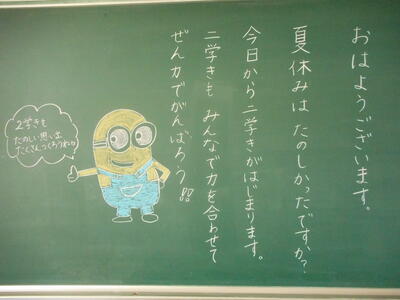 おはようございます。
夏休みは たのしかったですか?
今日から二学きがはじまります。
二学きも みんなで力を合わせて
ぜんカでがんばろう!!
2学きも
たのしい思い出
たくさんつくろうね。